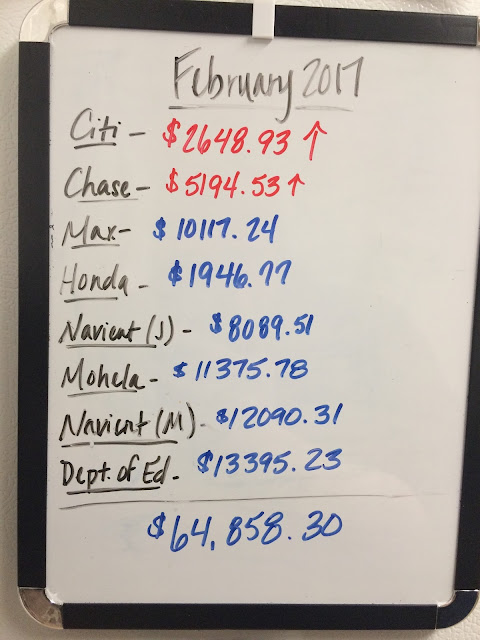 February 2017
Citi - $2648.93 ↑
Chase - $5194.53 ↑
Max - $10117.24
Honda - $1946.77
Navient (J) - $8089.51
Mohela - $11375.78
Navient (M) - $12090.31
Dept. of Ed. - $13395.23
$64,858.30